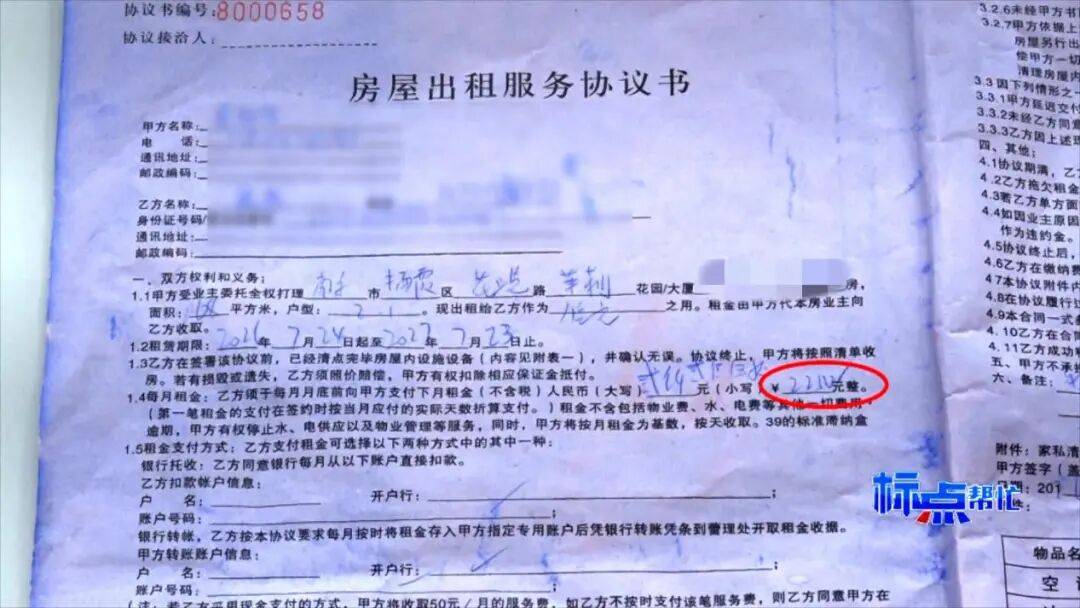 协议书编号:8000658
协议接洽人:
房屋出租服务协议书
甲方名称:
电 话:
通讯地址:
邮政编码:
乙方名称:
身份证号码/
通讯地址:
邮政编码:
一、双方权利和义务:
1.1甲方受业主委托全权打理 市 栖霞 区 路 花园/大厦 房,
面积: 平方米,户型: 2-1 。现出租给乙方作为 之用。租金由甲方代本房业主向
乙方收取。
1.2租赁期限: 7月24日起至 7月23日止。
1.3乙方在签署该协议前,已经清点完毕房屋内设施设备(内容见附表一),并确认无误。协议终止,甲方将按照清单收
房。若有损毁或遗失,乙方须照价赔偿,甲方有权扣除相应保证金抵付。
1.4每月租金:乙方须于每月月底前向甲方支付下月租金(不含税)人民币(大写) 元(小写)¥ 元整。
(第一笔租金的支付在签约时按当月应付的实际天数折算支付。)租金不含包括物业费、水、电费等其他一切费用,
逾期,甲方有权停止水、电供应以及物业管理等服务,同时,甲方将按月租金为基数,按天收取。39的标准滞纳金
1.5租金支付方式:乙方支付租金可选择以下两种方式中的其中一种:
银行托收:乙方同意银行每月从以下账户直接扣款。
乙方扣款帐户信息:
户 名: 开户行: ;
账户号码:
银行转帐,乙方按本协议要求每月按时将租金存入甲方指定专用账户后凭银行转账凭条到管理处开取租金收据。
甲方转账账户信息:
户 名: 开户行: ;
账户号码:
(注:若乙方采用现金支付的方式,甲方将收取50元/月的服务费,如乙方不按时支付该笔服务费,则
3.2.6未经甲方书
3.2.7甲方依据上
房屋另行出
偿甲方一切
清理房屋内
3.3因下列情形之一
3.3.1甲方延迟交付
3.3.2未经乙方同意
3.3.3乙方因上述理
四、其他:
4.1协议期满,乙
4.2乙方拖欠租金
4.3若乙方单方面
4.4如因业主原因
作为违约金。
4.5协议终止后,
4.6乙方在缴纳费
4.7本协议附件内
4.8在协议履行过
4.9本合同一式
4.10乙方在合同
4.11乙方成功
五、甲方不承
六、备注:
附件:家私清
甲方签字(盖
日期:201
物品名
空
标点帮忙